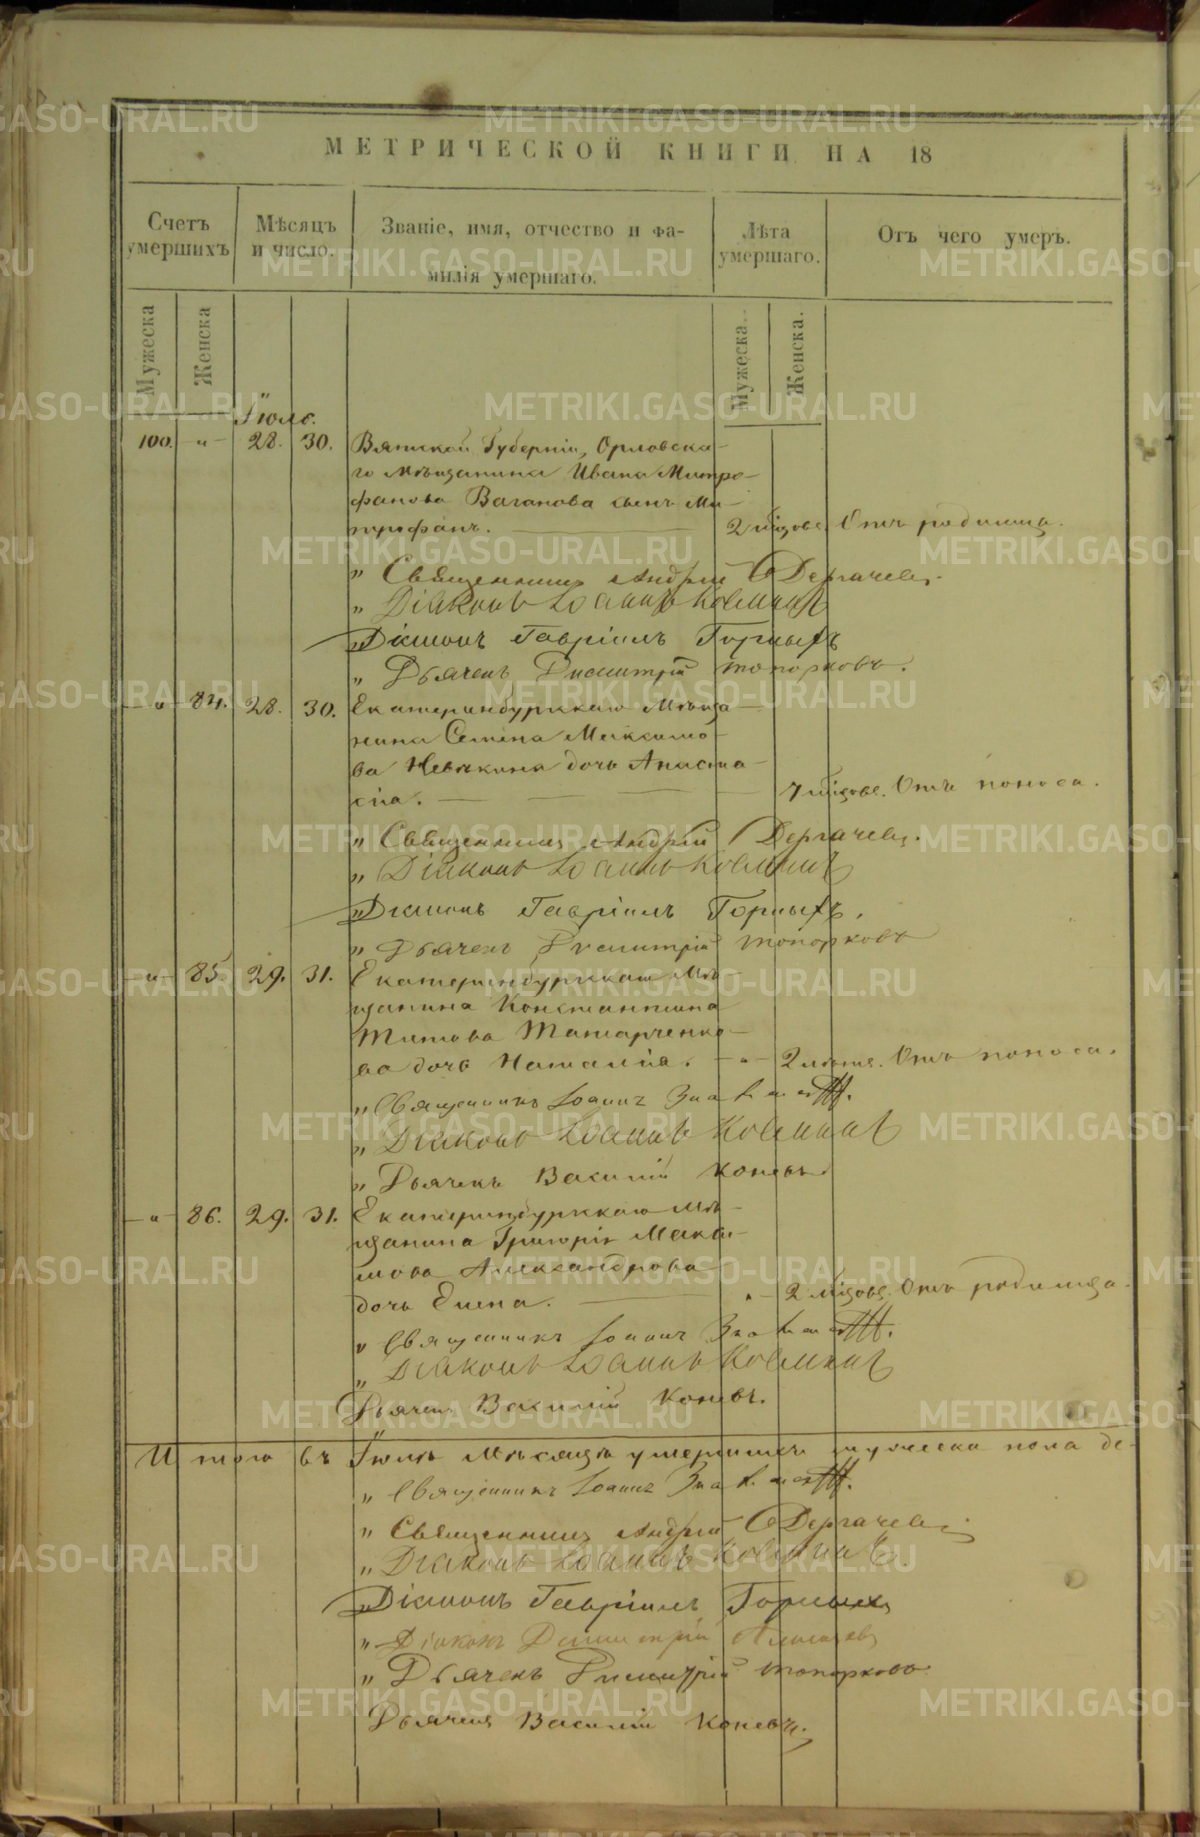 МЕТРИЧЕСКОЙ КНИГИ НА 18
Счетъ умершихъ
Мѣсяцъ и число.
Званіе, имя, отчество и фамилія умершаго.
Лѣта умершаго.
Отъ чего умеръ.
Мужеска
Женска
Мужеска.
Женска.
Іюль.
100. " 28. 30. Вятской Губерніи, Орловска-
го мѣщанина Ивана Митро-
фанова Ваганова сынъ Ми-
трофанъ. 2 мѣсяц. Отъ родимца.
" Священникъ Андрей Дергачевъ.
" Діаконъ Іоаннъ
" Діаконъ Гавріилъ Горныхъ
" Дьячекъ Димитрій Топорковъ.
" 84. 28. 30. Екатеринбургскаго Мѣща-
нина Семена Максимо-
ва Невякина дочь Анаста-
сіа. 7 мѣсяц. Отъ поноса.
" Священникъ Андрей Дергачевъ.
" Діаконъ Іоаннъ
" Діаконъ Гавріилъ Горныхъ.
" Дьячекъ Димитрій Топорковъ
" 85. 29. 31. Екатеринбургскаго Мѣ-
щанина Константина
Титова Татарченко-
ва дочь Наталіа. " 2 лѣтъ. Отъ поноса.
" Священникъ Іоаннъ
" Діаконъ Іоаннъ
" Дьячекъ Василій Коневъ.
" 86. 29. 31. Екатеринбургскаго Мѣ-
щанина Григорія Макси-
мова Александрова
дочь Елена. " 2 мѣсяц. Отъ родимца.
" Священникъ Іоаннъ
" Діаконъ Іоаннъ
Дьячекъ Василій Коневъ.
Итого въ Іюлѣ Мѣсяцѣ умершихъ мужеска пола де-
" Священникъ Іоаннъ
" Священникъ Андрей Дергачевъ
" Діаконъ Іоаннъ
" Діаконъ Гавріилъ Горныхъ
" Діаконъ Димитрій
" Дьячекъ Димитрій Топорковъ.
Дьячекъ Василій Коневъ.
METRIKI.GASO-URAL.RU